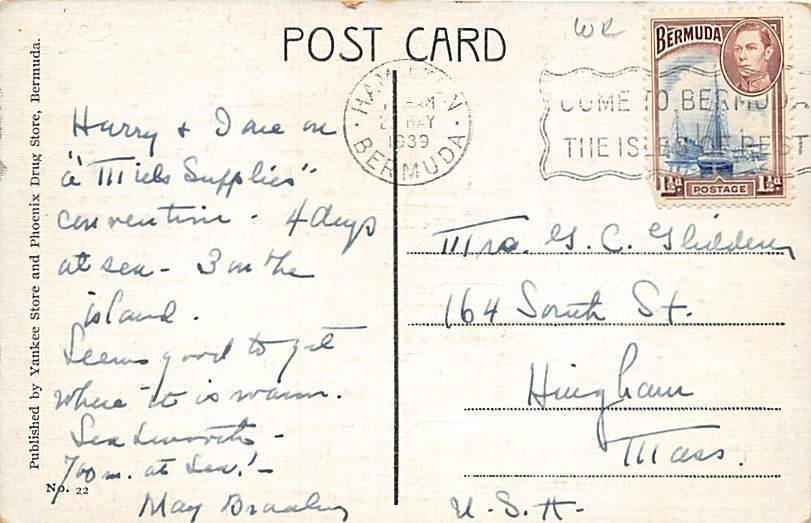 POST CARD
WR
BERMUDA
POSTAGE
HAMILTON
MAY
1939
BERMUDA
COME TO BERMUDA
THE ISLES OF REST
Harry & I are on
a "Mill Supplies"
convention - 4 days
at sea - 3 on the
island.
Seems good to get
where it is warm.
Sea smooth -
700 m. at sea! -
May
Mrs. G. C. Glidden
164 South St.
Hingham
Mass.
U.S.A.
Published by Yankee Store and Phoenix Drug Store, Bermuda.
No. 22